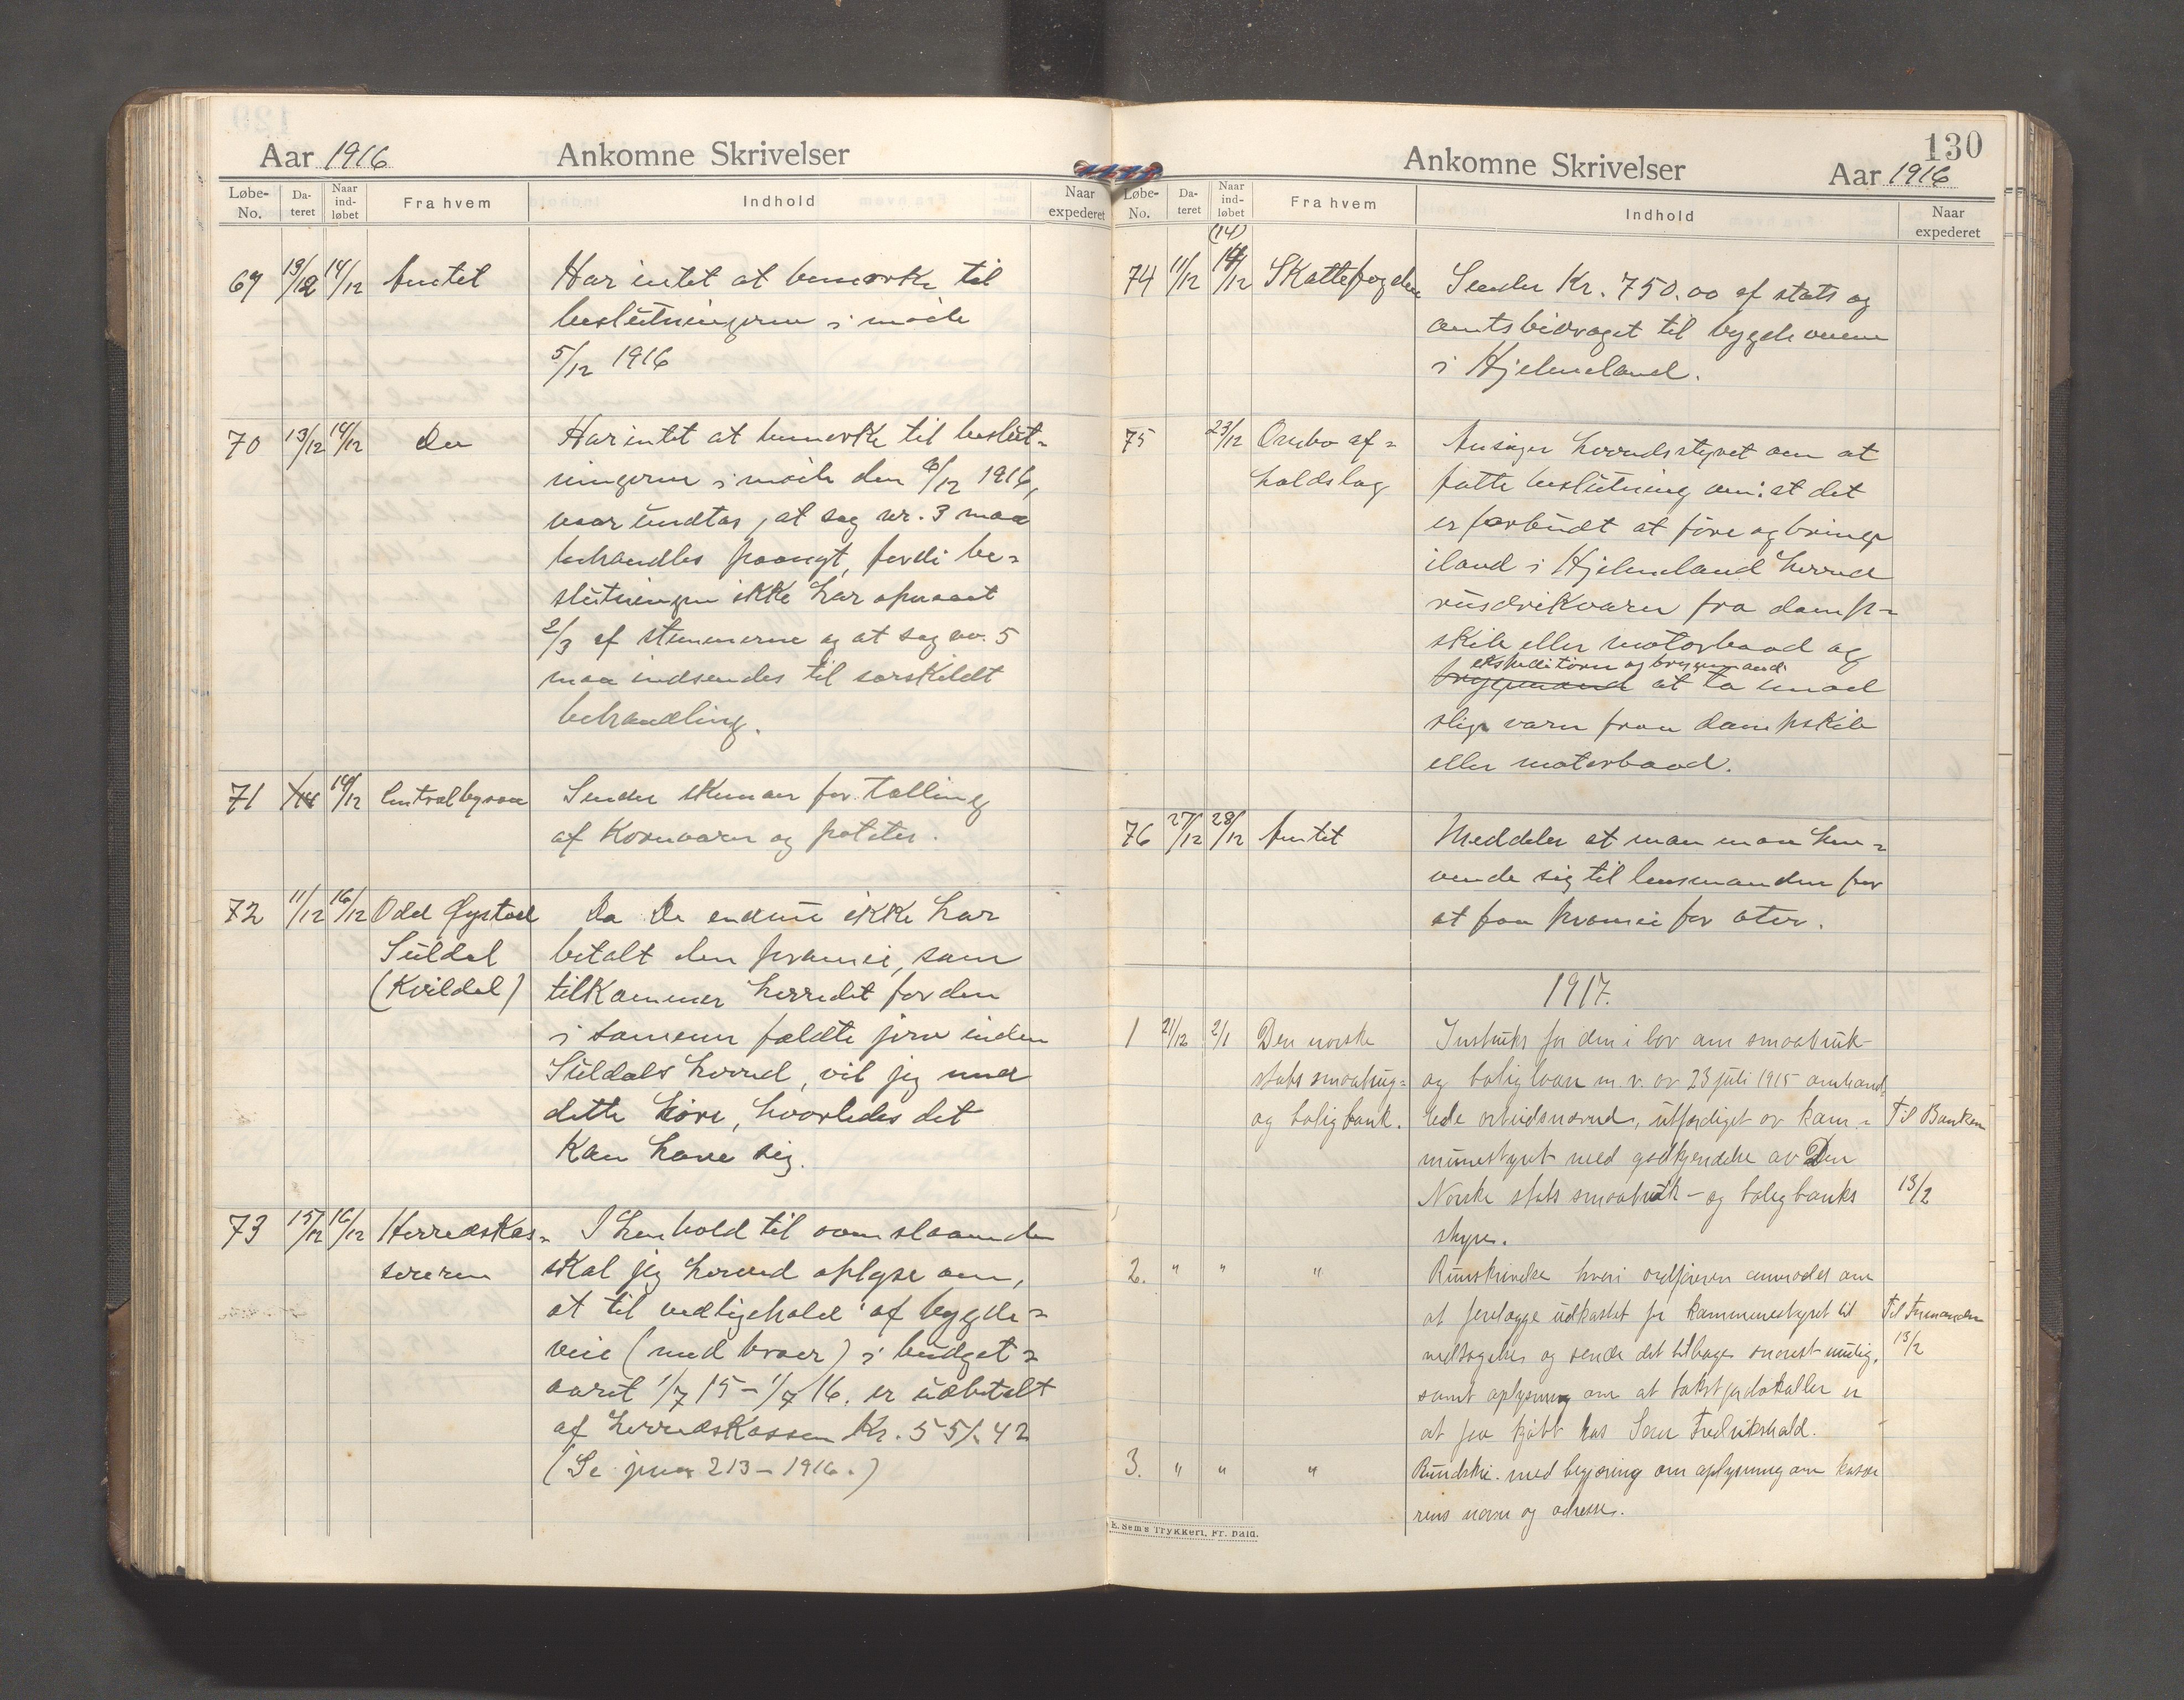 Aar 1916 Ankomne Skrivelser
Løbe-No. Dateret Naar indløbet Fra hvem Indhold Naar expederet
69 13/12 14/12 Amtet Har intet at bemærke til
beslutningerne i møde
5/12 1916
70 13/12 14/12 Do Har intet at bemerke til beslut-
ningerne i møde den 6/12 1916,
naar undtas, at sag nr. 3 maa
behandles paanyt, fordi be-
slutningen ikke har opnaaet
2/3 af stemmerne og at sag nr. 5
maa indsendes til særskildt
behandling.
71 14/12 Centralbyraa Sender skemaer for tælling
af Kornvarer og poteter.
72 11/12 16/12 Odd Øystad Da De endnu ikke har
Suldal betalt den præmie, som
(Kvildal) tilkommer herredet for den
i sommer fældte jerv inden
Suldals herred, vil jeg med
dette høre, hvorledes det
kan have sig.
73 15/12 16/12 Herredskas- I henhold til omslaaende
sereren skal jeg herved oplyse om,
at til vedligehold af bygde-
veie (med broer) i budget-
aaret 1/7 15 - 1/7 16. er udbetalt
af herredskassen Kr. 551.42
(Se jnr 213 - 1916.)
130
Ankomne Skrivelser Aar 1916
Løbe-No. Dateret Naar indløbet Fra hvem Indhold Naar expederet
(14)
74 11/12 14/12 Skattefogden Sender Kr. 750.00 af stats og
amtsbidraget til bygdeveiene
i Hjelmeland.
75 23/12 Ombo af- Ansøger herredsstyret om at
holdslag fatte beslutning om: at det
er forbudt at føre og bringe
iland i Hjelmeland herred
rusdrikvarer fra damp-
skib eller motorbaad og
ekspeditører og bryggemænd
bryggemænd at ta imod
slige varer fra dampskib
eller motorbaad.
76 27/12 28/12 Amtet Meddeler at man maa hen-
vende sig til lensmanden for
at faa præmie for oter.
1917.
1 21/12 2/1 Den norske Instruks for den i lov om smaabruk-
stats smaabrug- og boliglaan m. v. av 23 juli 1915 omhand-
og boligbank. lede arbeidsnævnd, utfærdiget av kom- Til Banken
munestyret med godkjendelse av Den
Norske stats smaabruk- og boligbanks 13/2
styre.
2. " " " Rundskrivelse hvori ordføreren anmodes om
at forelægge udkastet for kommunestyret til Til Formanden
vedtagelse og sende det tilbage snarest mulig, 13/2
samt oplysning om at takstprotokoller er
at faa kjøbt hos Sem Fredrikshald.
3. " " " Rundskr. med begjæring om oplysning om kasse-
rens navn og adresse.
E. Sem's Trykkeri, Fr. hald.